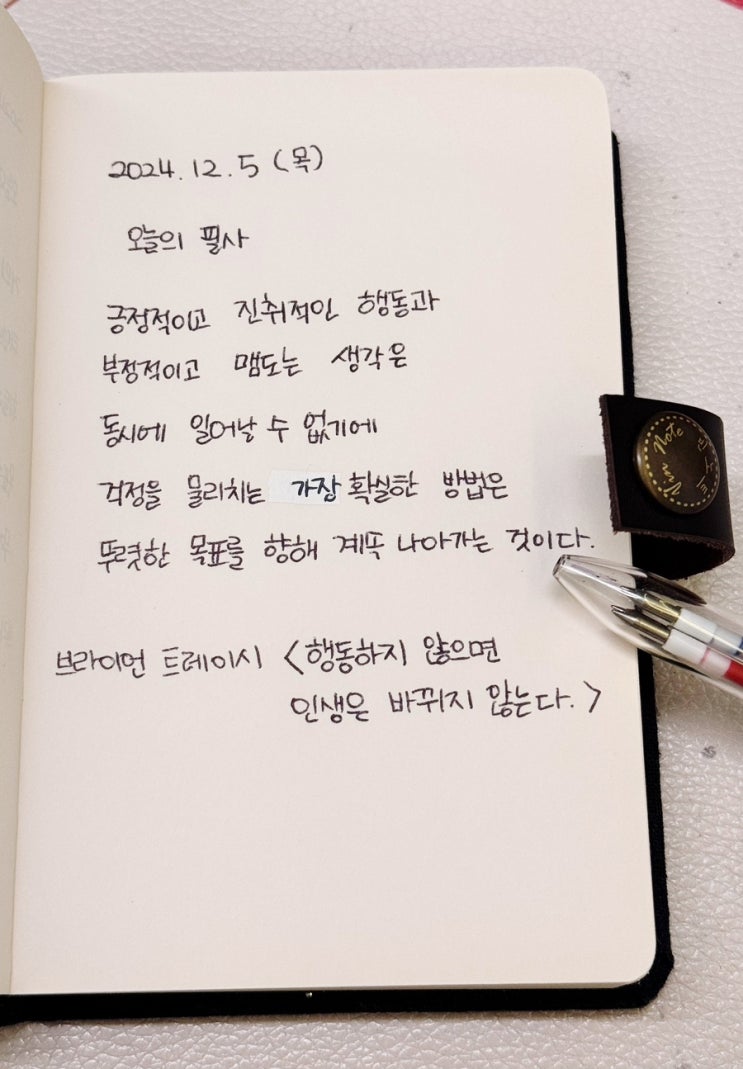 2024.12.5 (목)
오늘의 필사
긍정적이고 진취적인 행동과
부정적이고 맴도는 생각은
동시에 일어날 수 없기에
걱정을 물리치는 가장 확실한 방법은
뚜렷한 목표를 향해 계속 나아가는 것이다.
브라이언 트레이시 <행동하지 않으면
인생은 바뀌지 않는다.>
Vin Note
빈노트